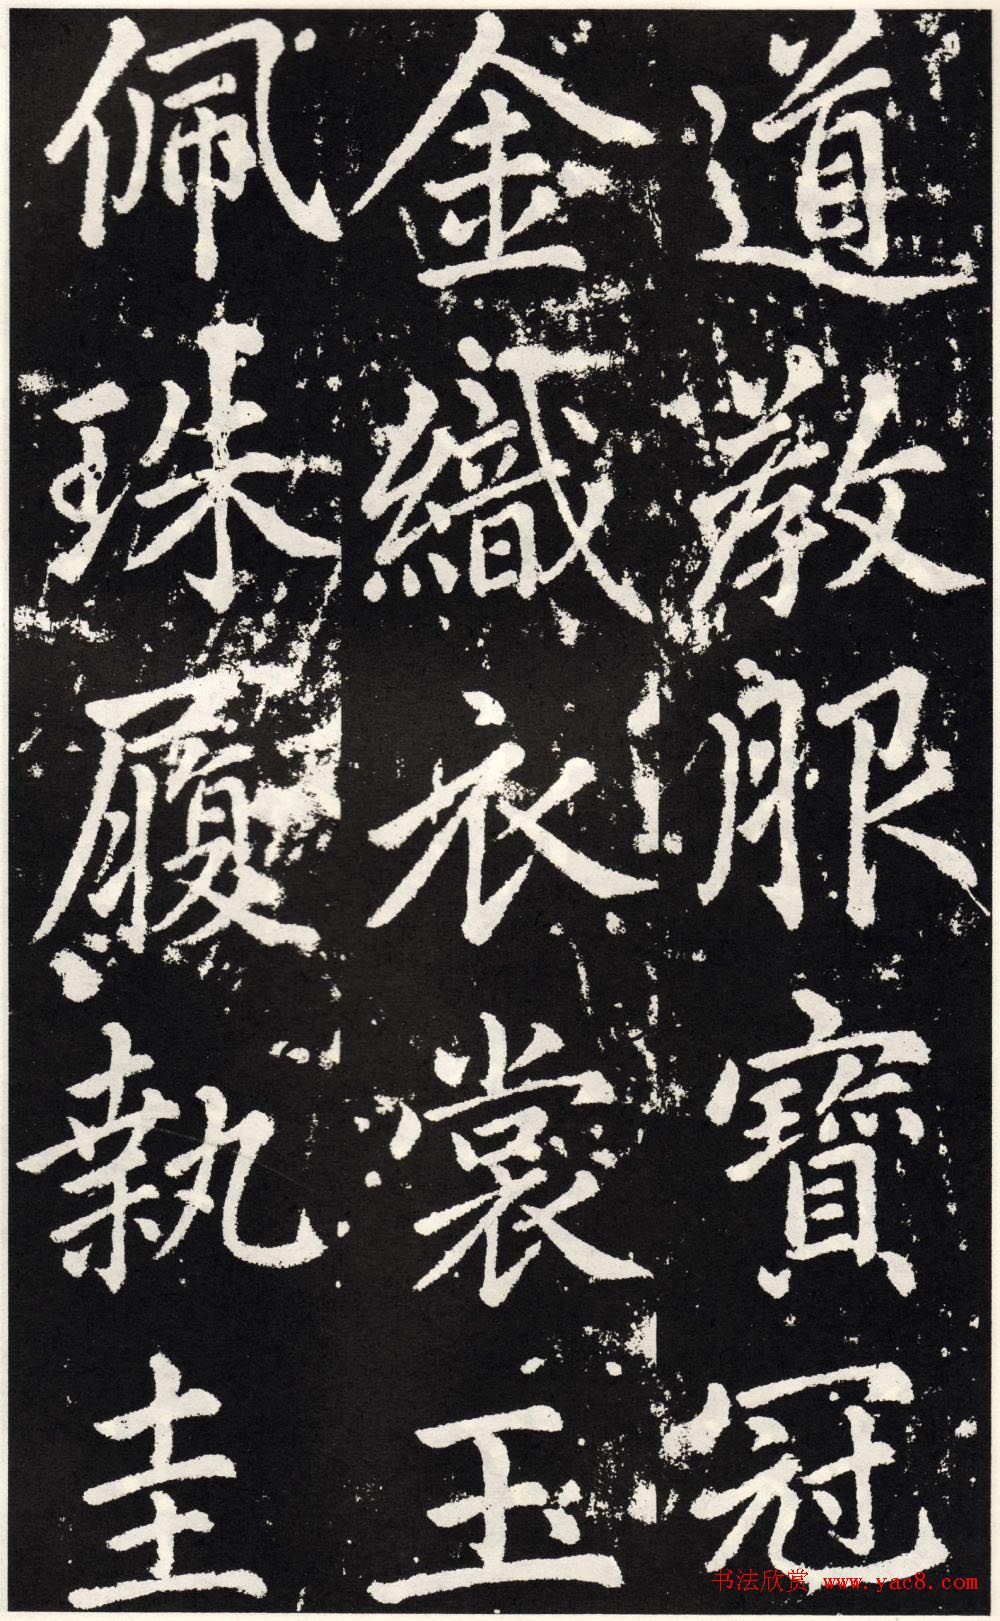 道教服寶冠
金織衣裳玉
佩珠履執圭
书法欣赏 www.yac8.com